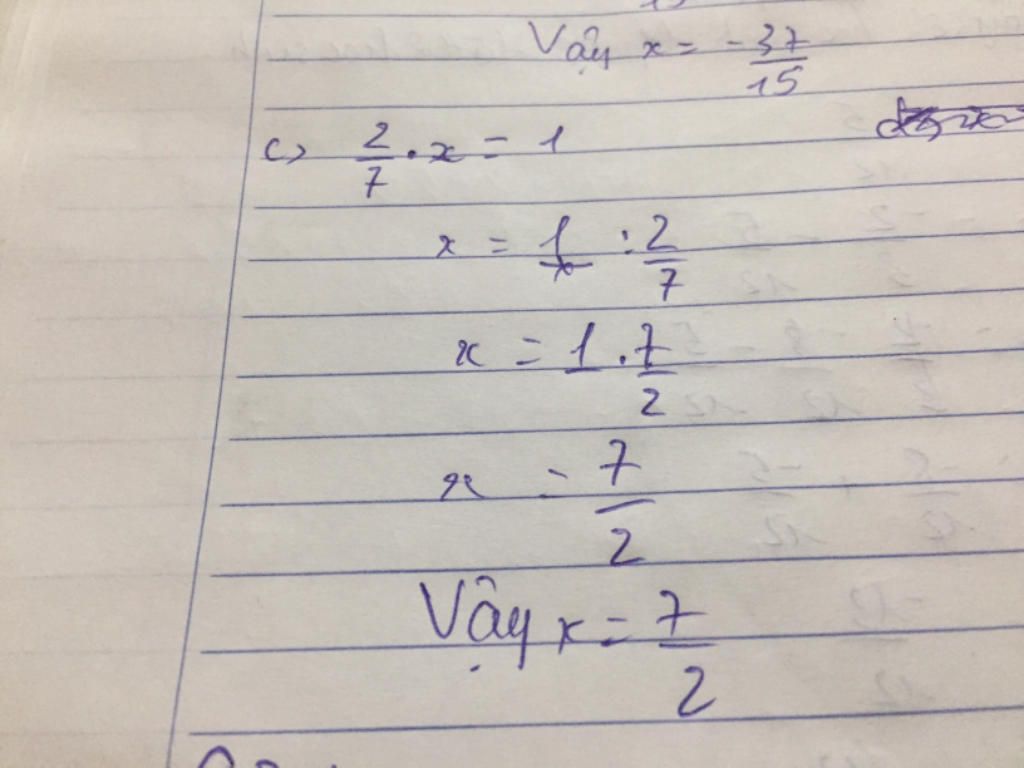 Vậy x = -37/15
c) 2/7 . x = 1
x = 1 : 2/7
x = 1 . 7/2
x = 7/2
Vậy x = 7/2